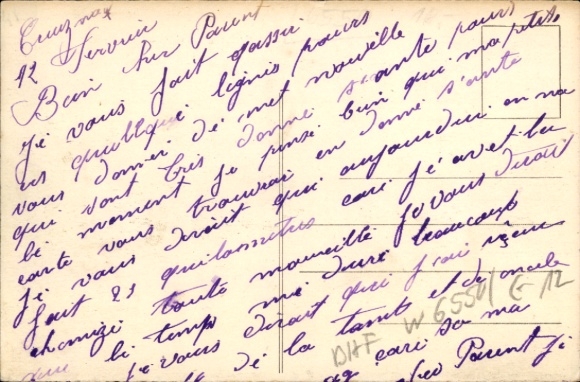 12 Fevrier
Bien cher Parent
Je vous fait passer
us quellque lignis pours
vous donnér dé mét nouvelle
qui sont trés bonne sante pours
lé moment Je pense bien qui ma petite
carte vous trouvrai en bonne s'ante
Jé vous dirait qui aujourdui on na
fait 21 quilomitres cari j'é avet la
chemize toute mouveillé Jé vous dirait
qui lé temps mé duré beaucoup
Jé vous dirait qui j'ai reçus
dé la tante et dé
cari sa ma
Parent Ji
DHF W6550/ G 12